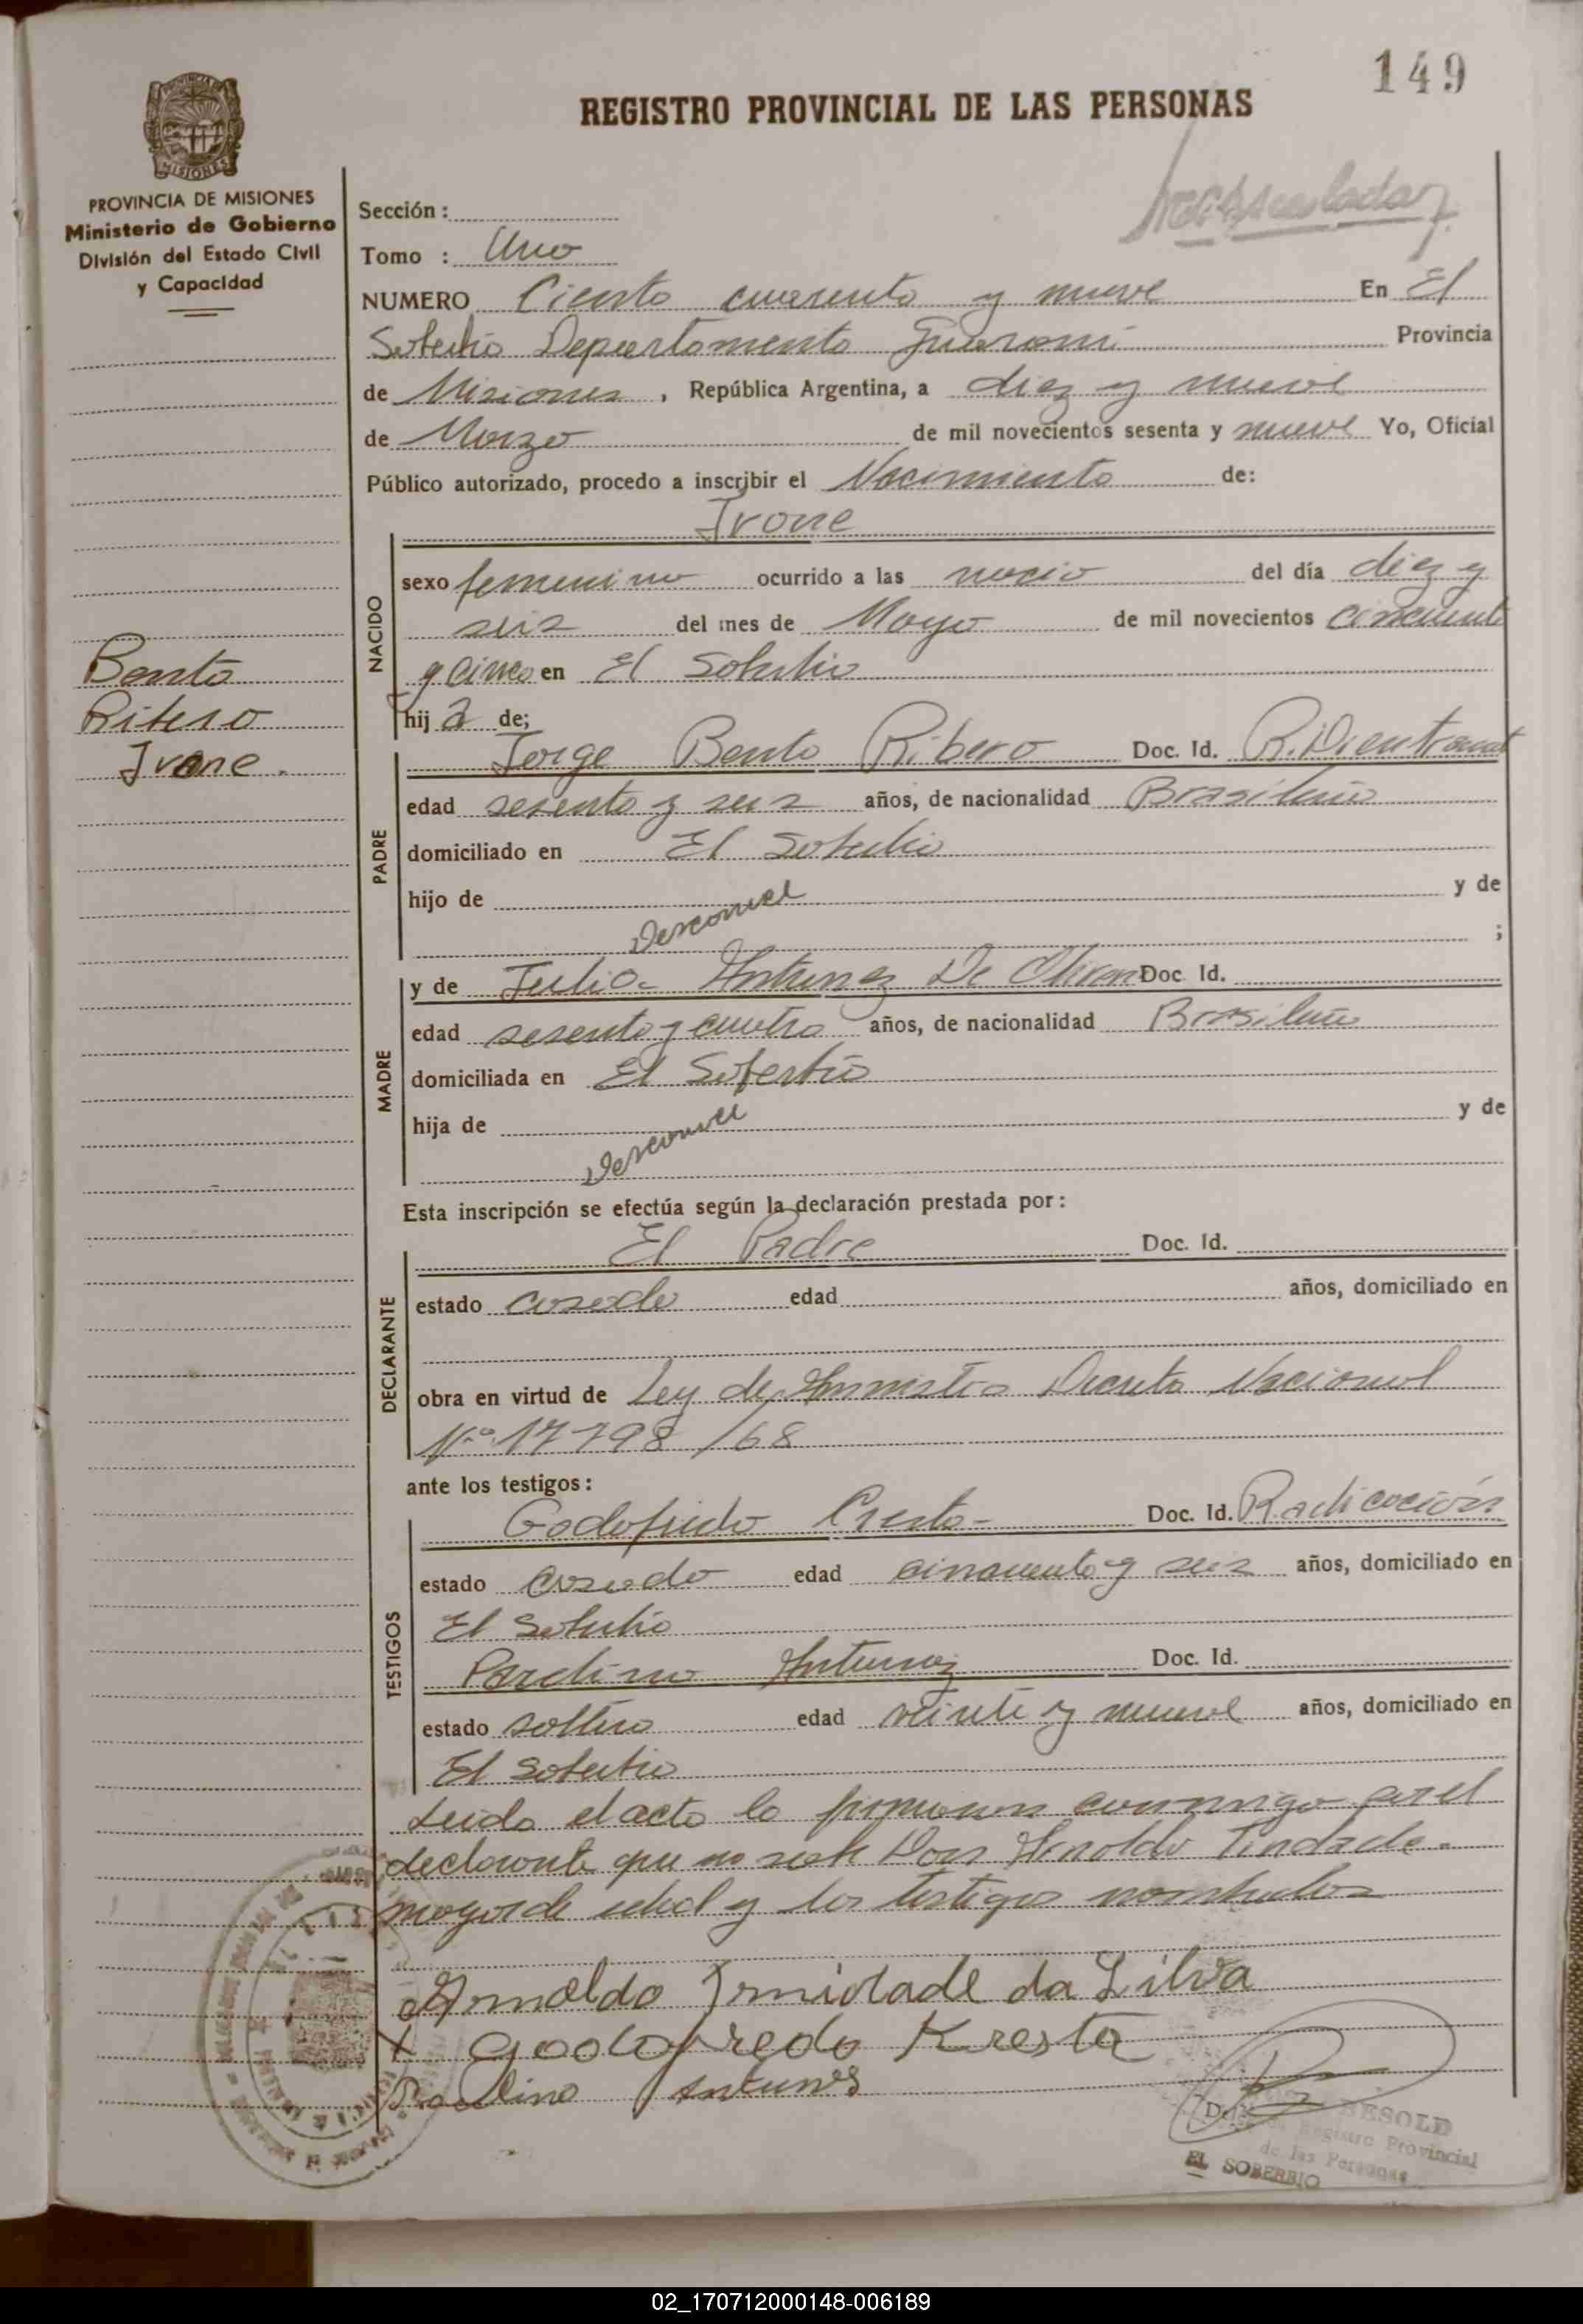 149
REGISTRO PROVINCIAL DE LAS PERSONAS
PROVINCIA DE MISIONES
Ministerio de Gobierno
División del Estado Civil
y Capacidad
Sección :
Tomo : Uno
NUMERO Ciento cuarenta y nueve En El
Soberbio Departamento Guaraní Provincia
de Misiones , República Argentina, a diez y nueve
de Marzo de mil novecientos sesenta y nueve Yo, Oficial
Público autorizado, procedo a inscribir el Nacimiento de:
Ivone
NACIDO
sexo femenino ocurrido a las del día diez y
seis del mes de Mayo de mil novecientos cincuenta
y cinco en El Soberbio
hija de;
Bento
Ribero
Ivone.
PADRE
Jorge Bento Ribero Doc. Id.
edad sesenta y seis años, de nacionalidad Brasileña
domiciliado en El Soberbio
hijo de y de
Desconoce ;
MADRE
y de Julia Antunez De Oliveira Doc. Id.
edad sesenta y cuatro años, de nacionalidad Brasileña
domiciliada en El Soberbio
hija de y de
Desconoce
Esta inscripción se efectúa según la declaración prestada por :
DECLARANTE
El Padre Doc. Id.
estado casado edad años, domiciliado en
obra en virtud de Ley de Amnistia Decreto Nacional
N.º 17798/68
ante los testigos :
TESTIGOS
Godofrido Cresta Doc. Id. Radicación
estado casado edad cincuenta y seis años, domiciliado en
El Soberbio
Antunez Doc. Id.
estado soltero edad veinte y nueve años, domiciliado en
El Soberbio
Leida el acta la firmaron conmigo por el
declarante que no sabe Don Arnoldo Tindade
mayor de edad y los testigos nombrados
Arnoldo da Silva
x Godofredo Kresta
Antunes
BESOLD
Registro Provincial
de las Personas
EL SOBERBIO
02_170712000148-006189